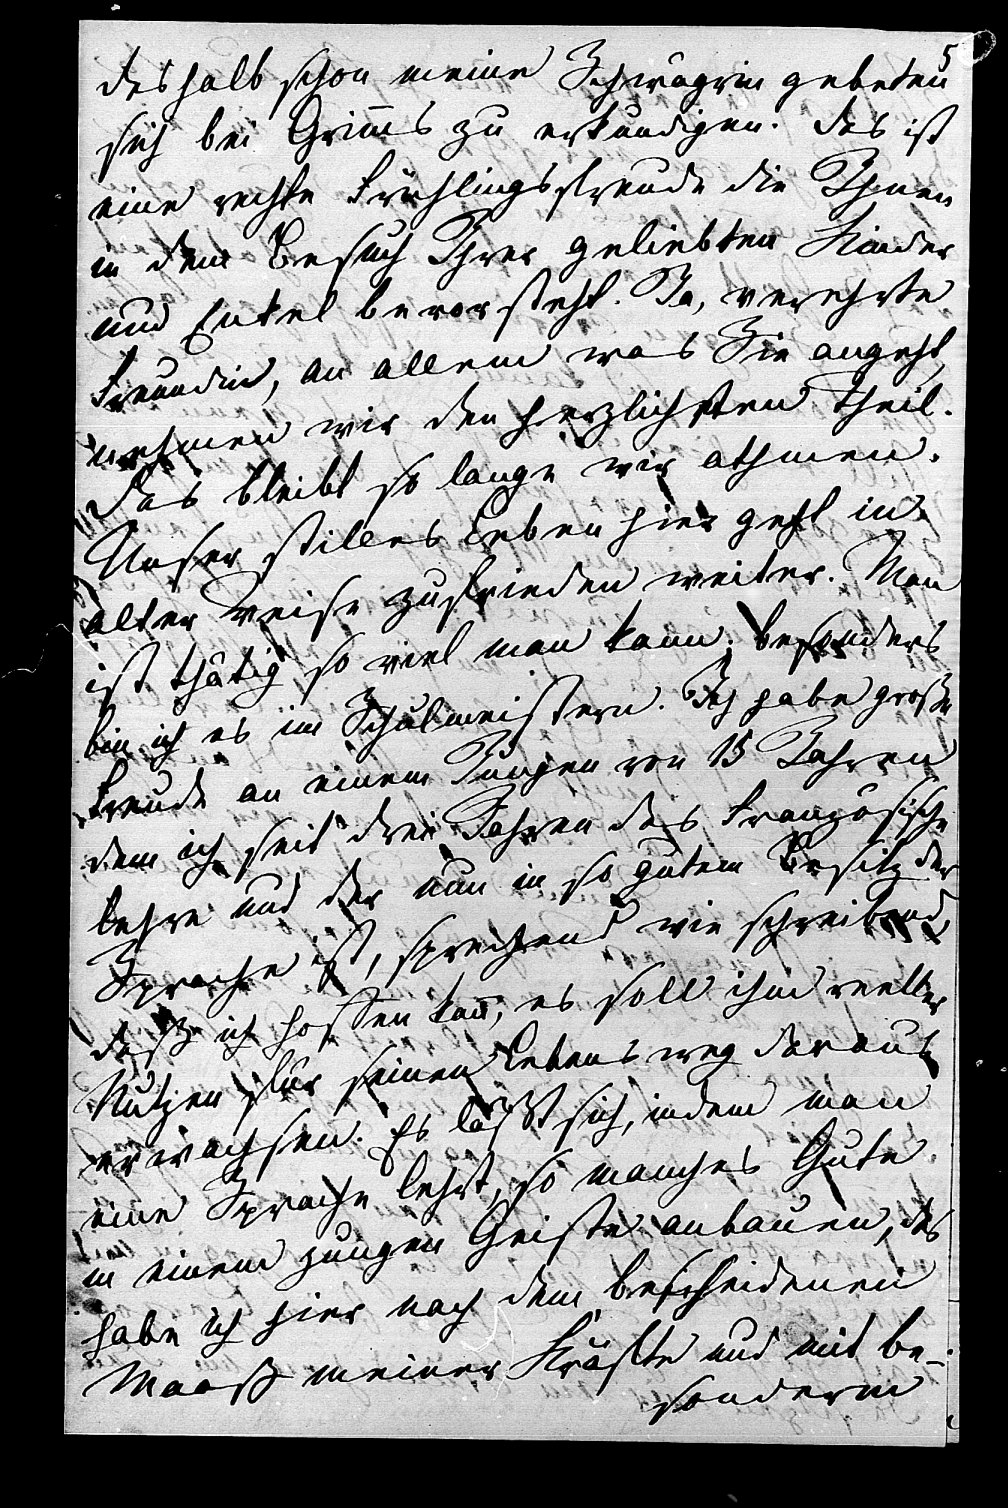 5
deshalb schon meine Schwägrin gebeten
sich bei Grims zu erkundigen. Das ist
eine rechte Frühlingsfreude die Ihnen
in dem Besuch Ihrer geliebten Kinder
und Enkel bevorsteht. Ja, verehrte
Freundin, an allem was Sie angeht,
nehmen wir den herzlichsten Theil.
Das bleibt so lange wir athmen.
Unser stilles Leben hier geht in
alter Weise zufrieden weiter. Man
ist thätig so viel man kann, besonders
bin ich es im Schulmeistern. Ich habe große
Freude an einem Jungen von 15 Jahren
dem ich seit drei Jahren das Französische
lehre und der nun in so gutem Besitz der
Sprache ist, sprechend wie schreibend,
daß ich hoffen kan, es soll ihm reeller
Nutzen für seinen Lebensweg daraus
erwachsen. Es läßt sich, indem man
eine Sprache lehrt, so manches Gute
in einem jungen Geiste anbauen, das
habe ich hier nach dem bescheidenen
Maaß meiner Kräfte und mit be-
sonderm